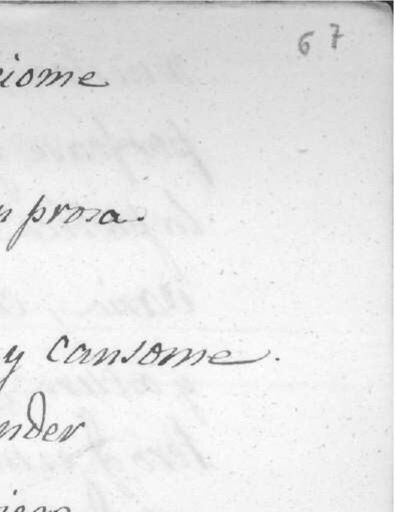 67
iome
n prosa.
y cansome.
nder